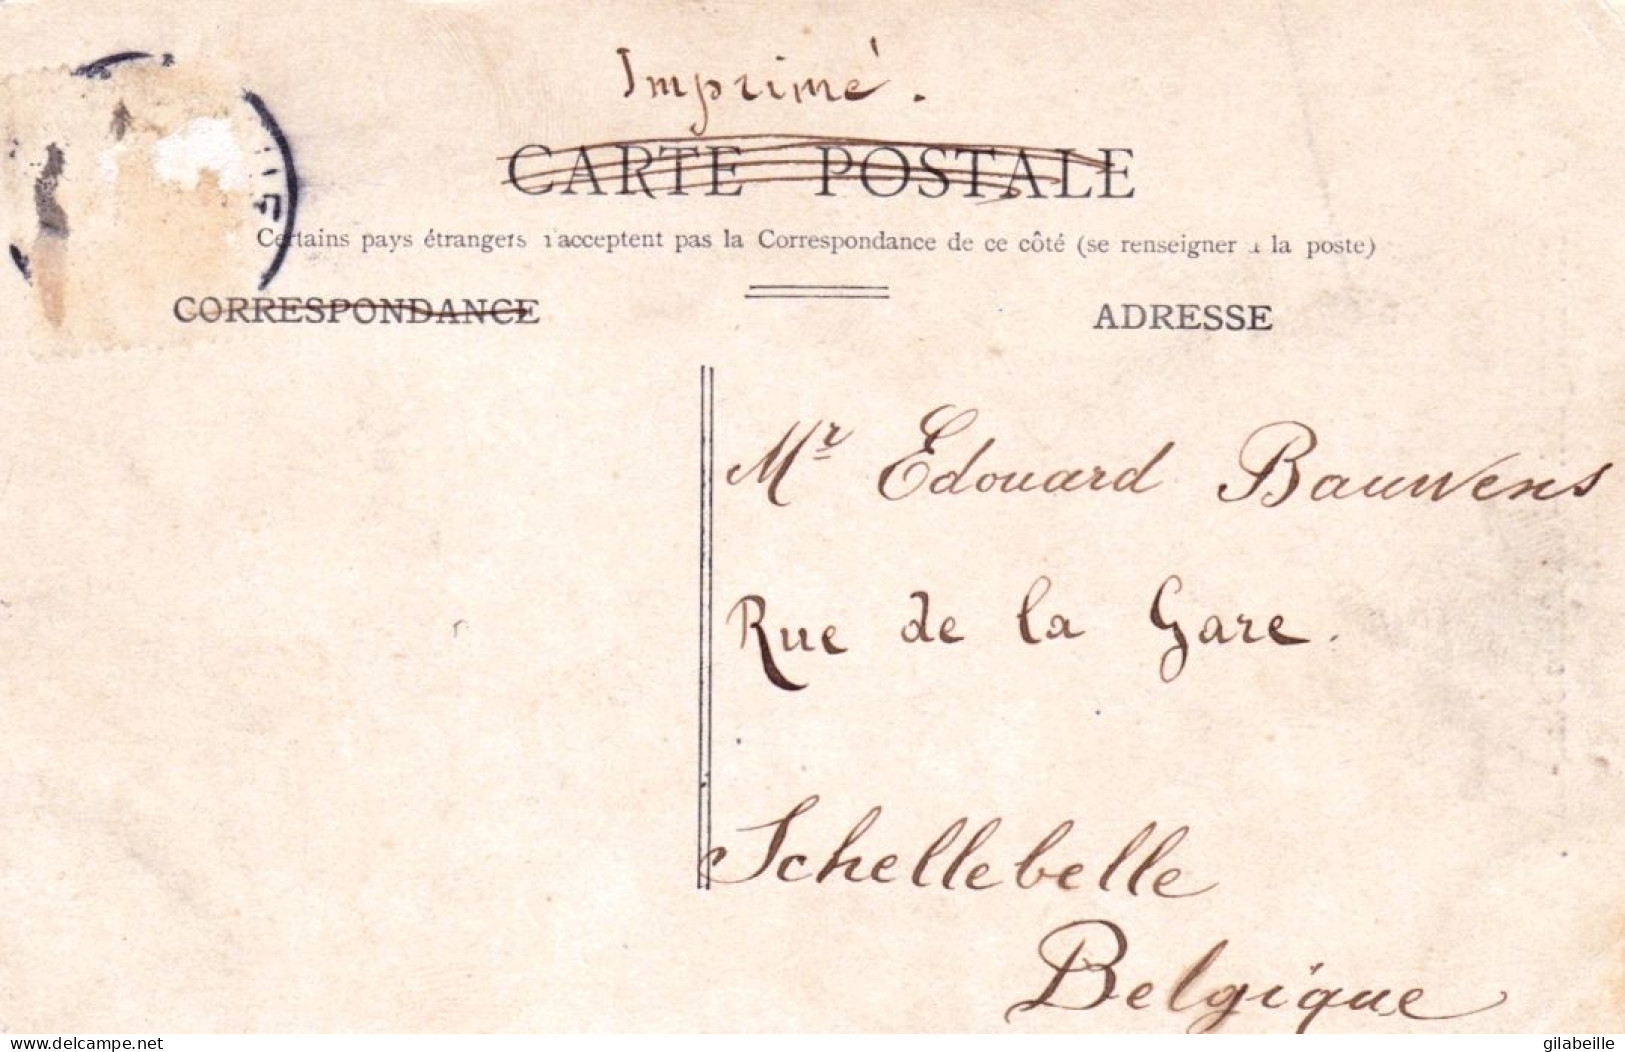 Imprimé.
CARTE POSTALE
Certains pays étrangers n'acceptent pas la Correspondance de ce côté (se renseigner à la poste)
CORRESPONDANCE
ADRESSE
Mr Edouard Bauwens
Rue de la Gare.
Schellebelle
Belgique
delcampe.net
gilabeille